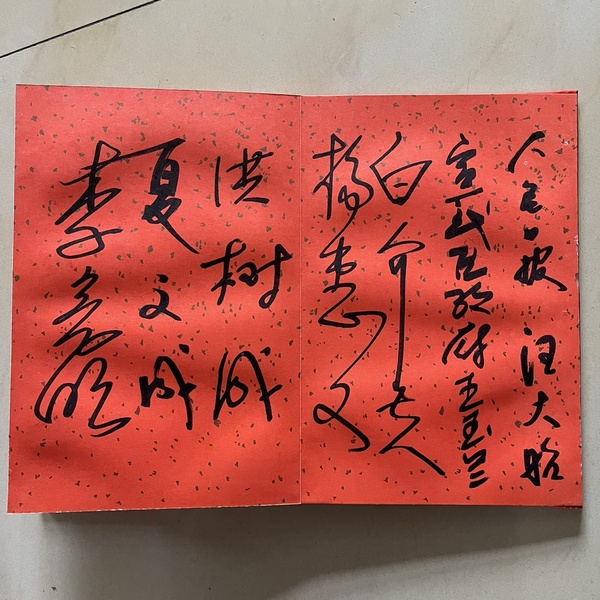 人民日报 汪大昭
宣武区政府王玉兰
白介夫
杨
洪树成
夏文成
李